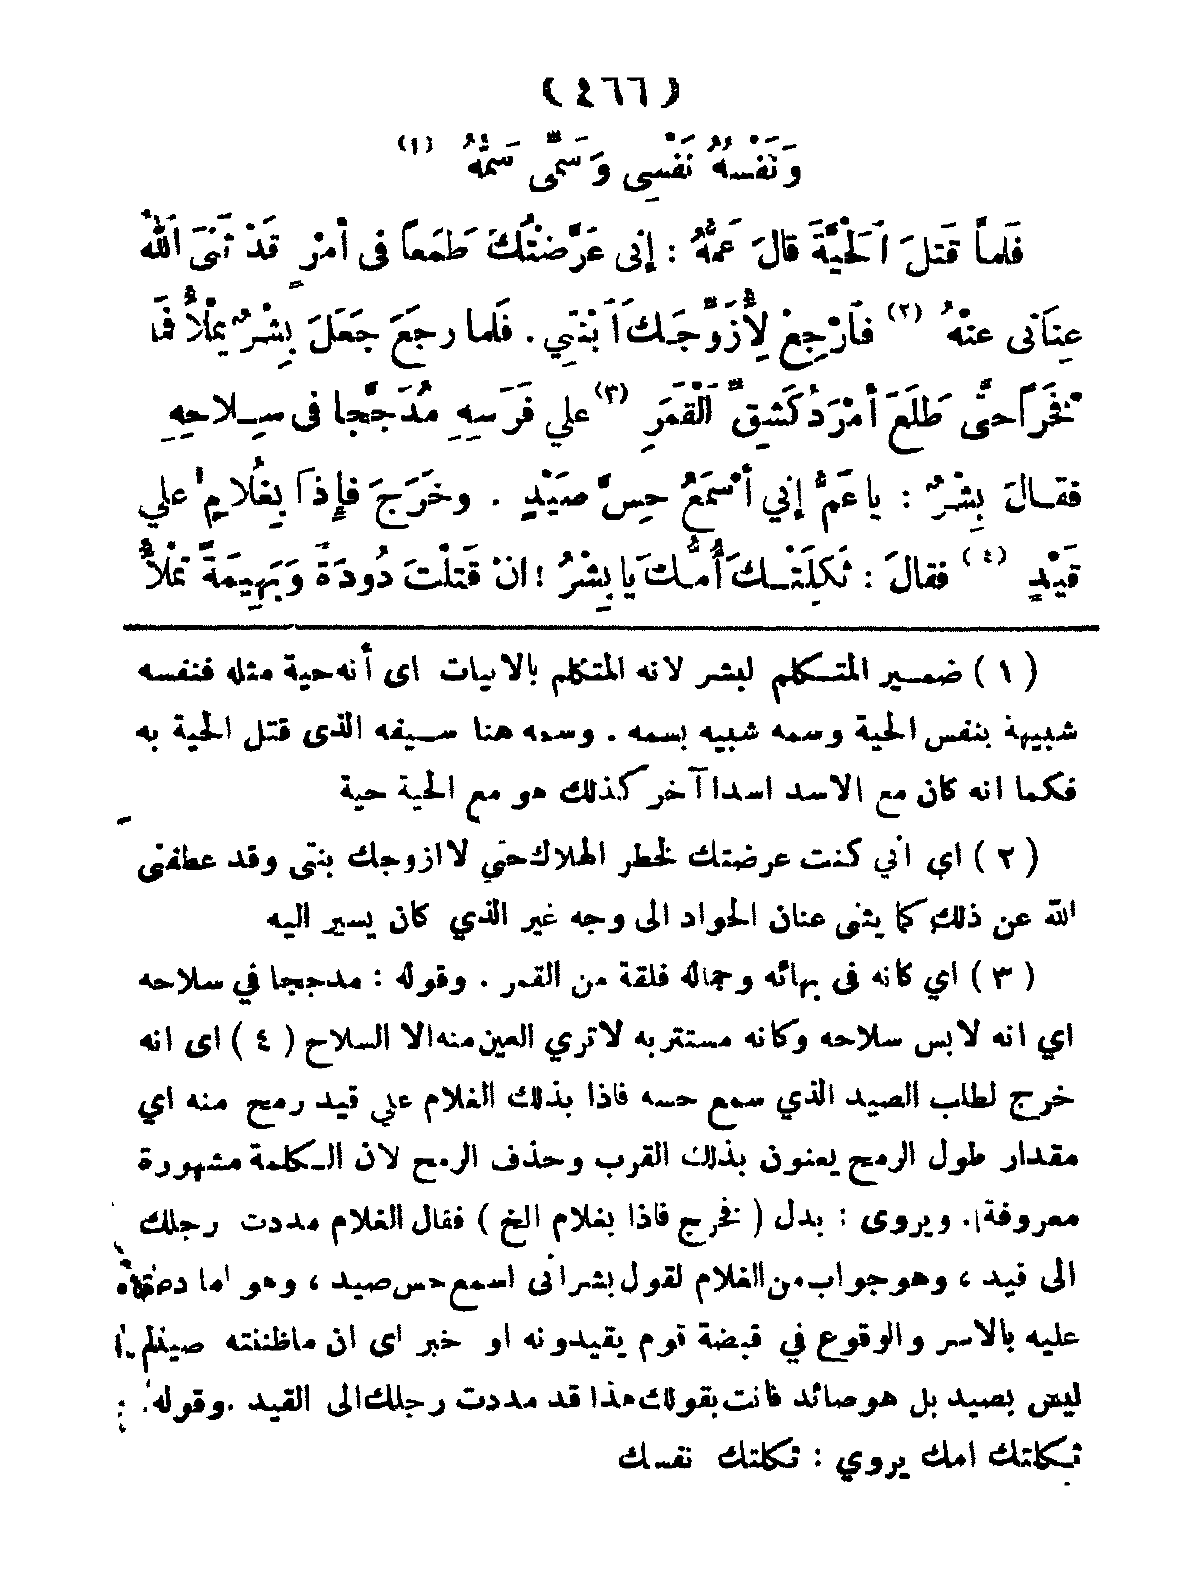 ( ٤٦٦ )
وَنَفْسُهُ نَفْسِي وَسَمِّى سَمُّهُ (١)
فَلماَّ قَتَلَ اَلْحْيَّةَ قالَ عَمُّهُ : إِنى عَرَّضتُكَ طَمَعاً فى أمْرٍ قَدْ ثَنَىَ اَللهُ
عِنَانى عنْهُ (٢) فاَرْجِعْ لِأُزَوِّجَـكَ اَبْنَتِي . فَلما رجَعَ جَعَلَ بِشْرٌ يمْلأُ فَمَا
نْخَرَاً حتَّى طَلَعَ أمْرَدُ كَشِقِّ اَلْقَمَرِ (٣) علي فَرَسِهِ مُدَجَّجا فى سِـلاحِهِ
فقـالَ بِشْرٌ : يا عَمُّ إني أسْمَعُ حِسَّ صَيْدٍ . وخَرَجَ فإِذَا بِغُلامٍ علي
قَيْدٍ (٤) فقالَ : ثَكِلَتْـكَ أُمُّـكَ يا بِشْرُ ! انْ قَتَلْتَ دُودَةً وَبَهِيمَةً تمْلأُ
( ١ ) ضمـير المتـكلم لبشر لانه المتكلم بالابيات اى أنه حية مثله فنفسه
شبيهة بنفس الحية وسمه شبيه بسمه . وسمه هنا سـيفه الذى قتل الحية به
فكما انه كان مع الاسد اسدا آخر كذلك هو مع الحية حية
( ٢ ) اي أني كنت عرضتك لخطر الهلاك حتي لا ازوجك بنتى وقد عطفنى
الله عن ذلك كما يثنى عنان الجواد الى وجه غير الذي كان يسير اليه
( ٣ ) اي كانه فى بهائه وجماله فلقة من القمر . وقوله : مدججا في سلاحه
اي انه لابس سلاحه وكانه مستتر به لا تري العين منه الا السلاح ( ٤ ) اى انه
خرج لطلب الصيد الذي سمع حسه فاذا بذلك الغلام علي قيد رمح منه اي
مقدار طول الرمح يعنون بذلك القرب وحذف الرمح لان الـكلمة مشهورة
معروفة . ويروى : بدل ( فخرج فاذا بغلام الخ ) فقال الغلام مددت رجلك
الى قيد ، وهو جواب من الغلام لقول بشر انى اسمع حس صيد ، وهو اما دعاء
عليه بالاسر والوقوع في قبضة قوم يقيدونه او خبر اى ان ماظننته صيدا
ليس بصيد بل هو صائد فانت بقولك هذا قد مددت رجلك الى القيد . وقوله :
ثـكلتك امك يروي : ثكلتك نفسك